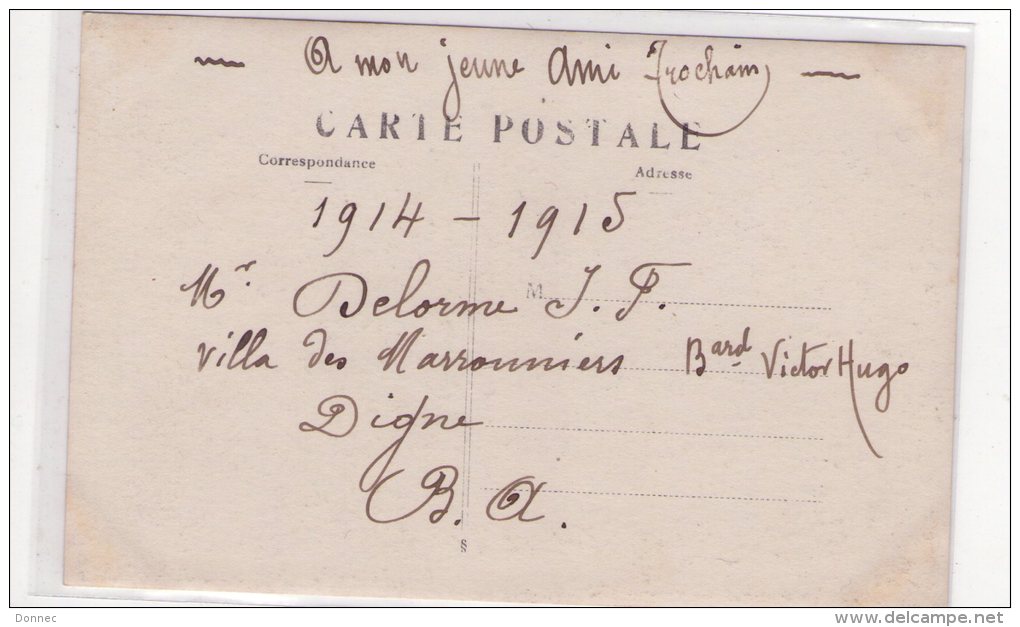 — A mon jeune Ami Trochain —
CARTE POSTALE
Correspondance
Adresse
1914 - 1915
Mr. Delorme J. F.
M
Villa des Marronniers Bard Victor Hugo
Digne
B. A.
§
Donnec
www.delcampe.net